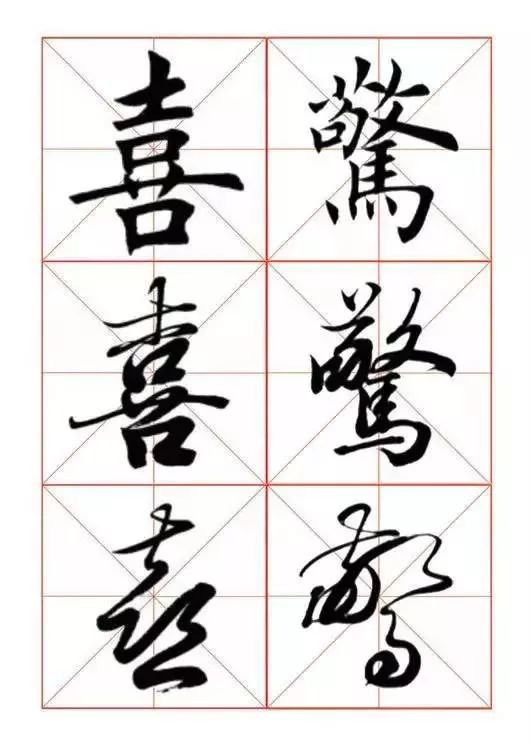 喜驚
喜驚
喜驚